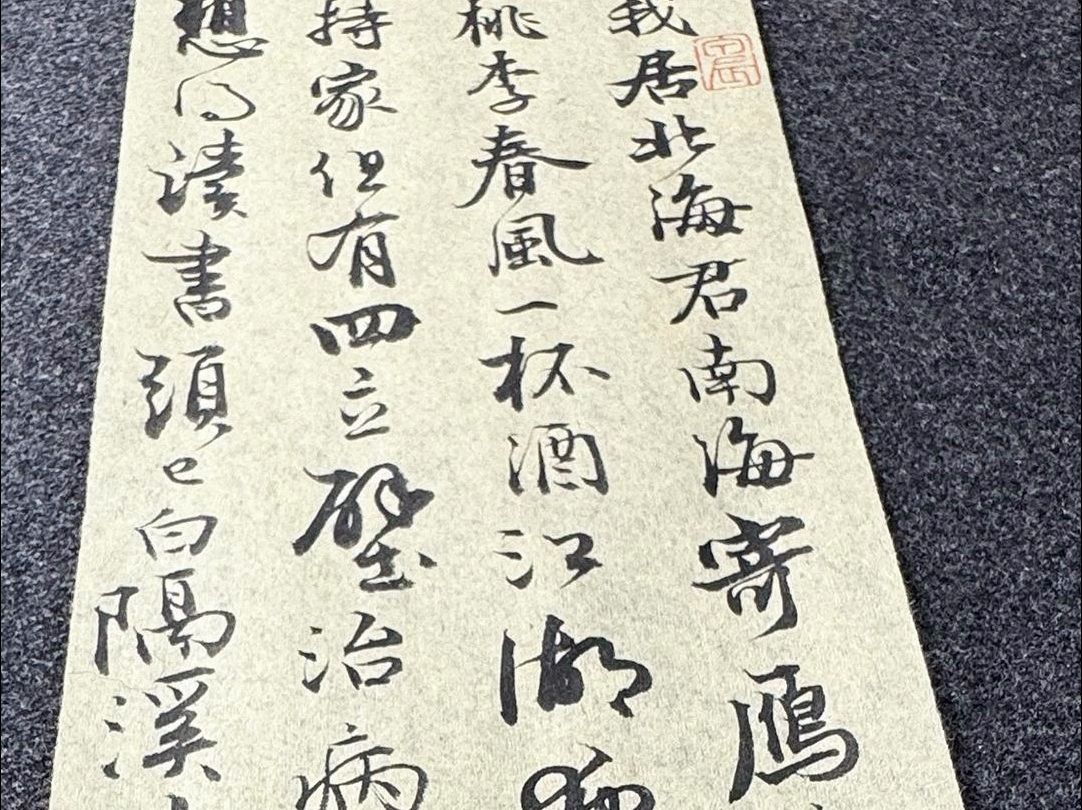 我居北海君南海寄鴈
桃李春風一杯酒江湖夜
持家但有四立壁治病
想得讀書頭已白隔溪